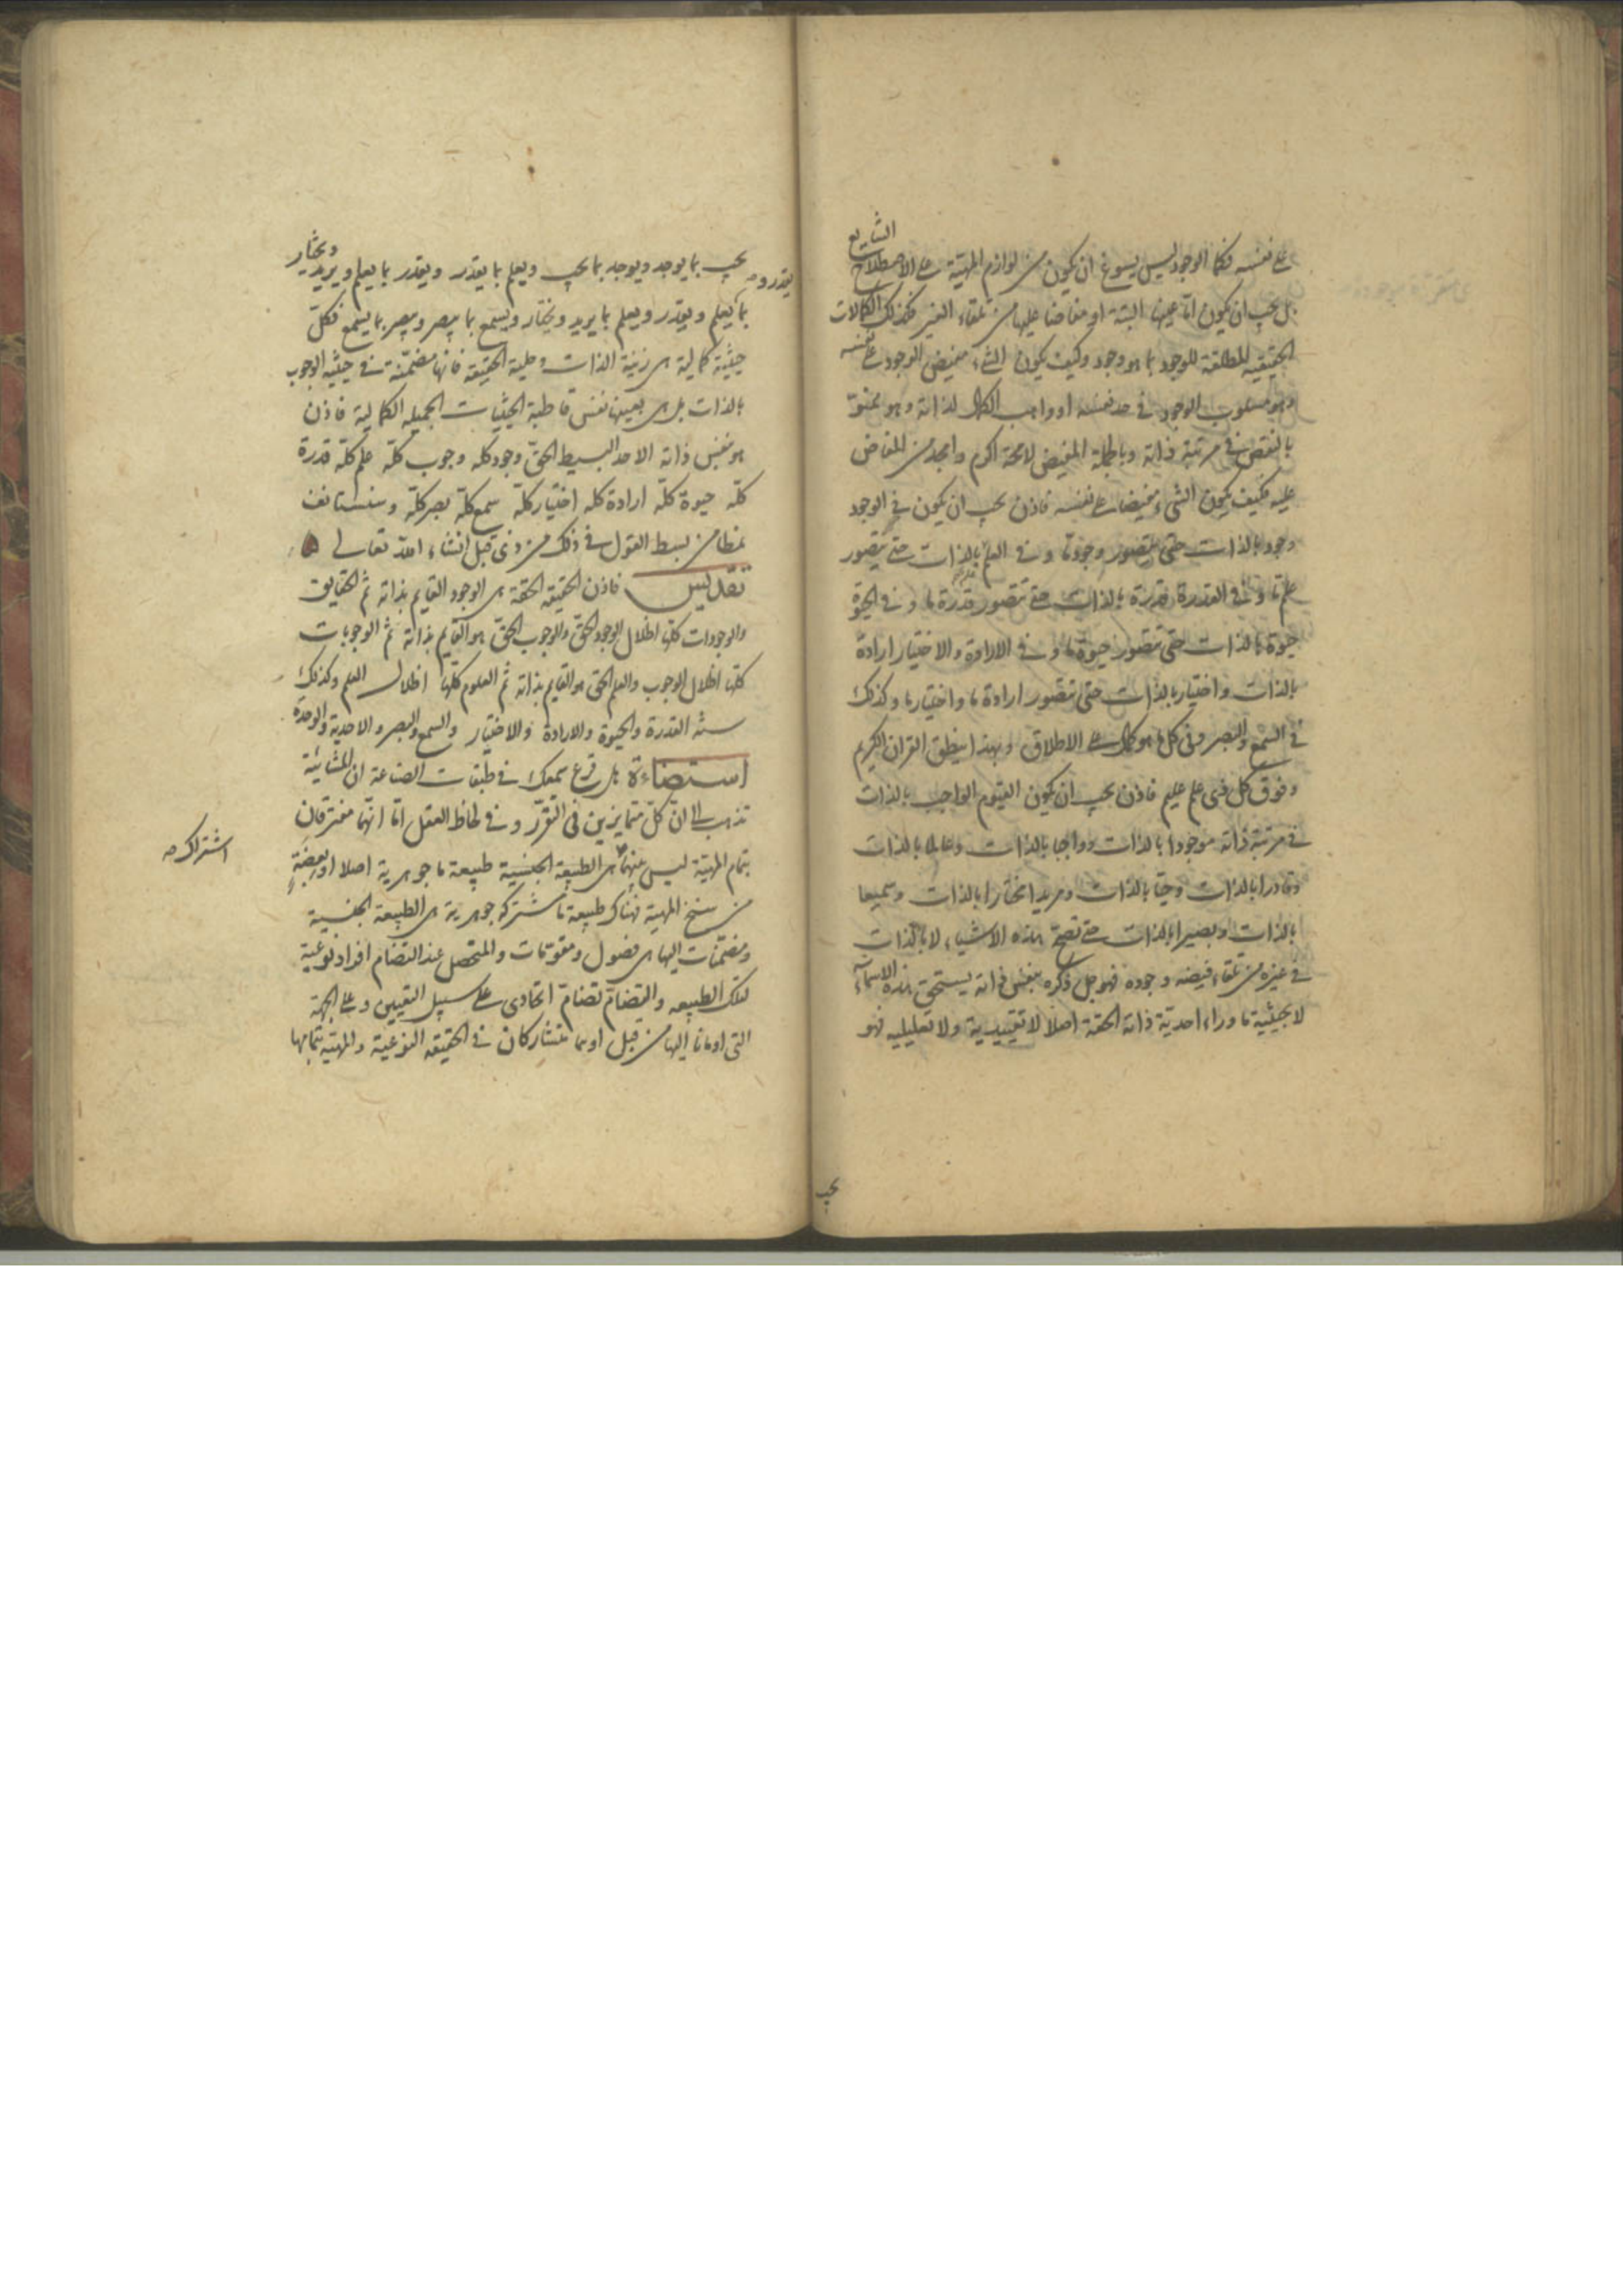 الشايع
على نفسه فكما الوجود ليس يسوغ ان يكون من لوازم المهيّة على الاصطلاح
بل يجب ان يكون امّا عينها البتة او مفاضا عليها من تلقاء الغير فكذلك الكمالات
الحقيقيه المطلقة للوجود بما هو وجود وكيف يكون الشيء مفيض الوجود على نفسه
وهو مسلوب الوجود في حد نفسه او واهب الكمال لذاته وهو ممنوّ
بالنقص في مرتبة ذاته وبالجملة المفيض لا محة اكرم وامجد من المفاض
عليه فكيف يكون الشيء مفيضا على نفسه فاذن يجب ان يكون في الوجود
وجود بالذات حتى يتصور وجود ما و في العلم علم بالذات حتى يتصور
علم ما و في القدرة قدرة بالذات حتى تتصور قدرة ما و في الحيوة
حيوة بالذات حتى تتصور حيوة ما و في الارادة والاختيار ارادة
بالذات واختيار بالذات حتى تتصور ارادة ما واختيار ما وكذلك
في السّمع والبصر وفي كل ما هو كمال على الاطلاق وبهذا ينطق القران الكريم
وفوق كل ذى علم عليم فاذن يجب ان يكون القيّوم الواجب بالذات
في مرتبة ذاته موجودا بالذات وواجبا بالذات وعالما بالذات
وقادرا بالذات وحيّا بالذات ومريدا مختارا بالذات وسميعا
بالذات وبصيرا بالذات حتى تصحّ هذه الاشياء لا بالذات
في غيره من تلقاء فيضه وجوده فهو جل ذكره بنفس ذاته يستحق هذه الاسماء
لا بحيثية ما وراء احديّة ذاته الحقة اصلا لا تقييدية ولا تعليليه فهو
يجب
ويختار
يجب بما يوجد ويوجد بما يجب ويعلم بما يقدر ويقدر بما يعلم ويريد
يقدر و صح
بما يعلم ويقدر ويعلم بما يريد ويختار ويسمع بما يبصر ويبصر بما يسمع فكلّ
حيثية كمالية هى زينة الذات وحلية الحقيقه فانها مضمّنة في حيثيه الوجوب
بالذات بل هى بعينها نفس قاطبة الحيثيات الجميله الكمالية فاذن
هو بنفس ذاته الاحد البسيط الحقّ وجود كله وجوب كلّه علم كلّه قدرة
كلّه حيوة كلّه ارادة كله اختيار كلّه سمع كلّه بصر كلّه وسنستانف
نمطا من بسط القول في ذلك من ذى قبل انشاء الله تعالى
تقديس فاذن الحقيقه الحقة هى الوجود القايم بذاته ثم الحقايق
والوجودات كلها اظلال الوجود الحقّ والوجوب الحقّ هو القايم بذاته ثم الوجوبات
كلها اظلال الوجوب والعلم الحق هو القايم بذاته ثم العلوم كلّها اظلال العلم وكذلك
سنّة القدرة والحيوة والارادة والاختيار والسمع والبصر والاحدية والوحدة
استضاءة هل قرع سمعك في طبقات الصناعة ان المشائيّة
تذهب الى انّ كلّ متمايزين في التقرّر و في لحاظ العقل امّا انهما مفترقان
بتمام المهيّة ليس بينهما في الطبيعة الجنسية طبيعة ما جوهرية اصلا او ببعضةٍ
اشتراك صح
من سنخ المهية فهناك طبيعة ما مشتركة جوهرية هى الطبيعة الجنسية
ومضمّنات اليها هى فصول ومقومات والمتحصل عند التضام افراد نوعية
لتلك الطبيعه والتضامّ تضامّ اتحادى على سبيل التعيين وعلى الجهة
التى اومانا اليها من قبل او هما متشاركان في الحقيقه النوعية والمهيّة بتمامها